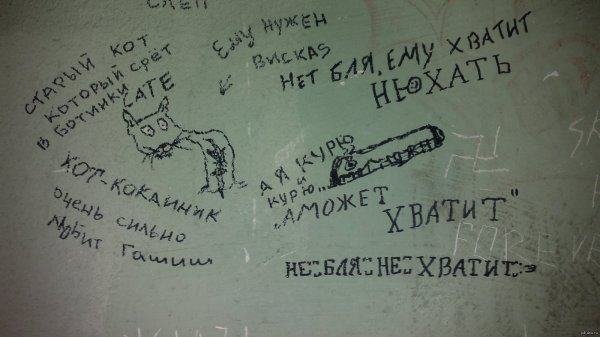 СТАРЫЙ КОТ
КОТОРЫЙ СРЁТ
В БОТИНКИ
CATE
ЕМУ НУЖЕН
ВИСКАS
НЕТ БЛЯ, ЕМУ ХВАТИТ
НЮХАТЬ
КОТ-КОКАИНИК
ОЧЕНЬ СИЛЬНО
ЛЮБИТ ГАШИШ
А Я КУРЮ
И
КУРЮ
„АМОЖЕТ
ХВАТИТ"
НЕ БЛЯ НЕ ХВАТИТ
FOREVE